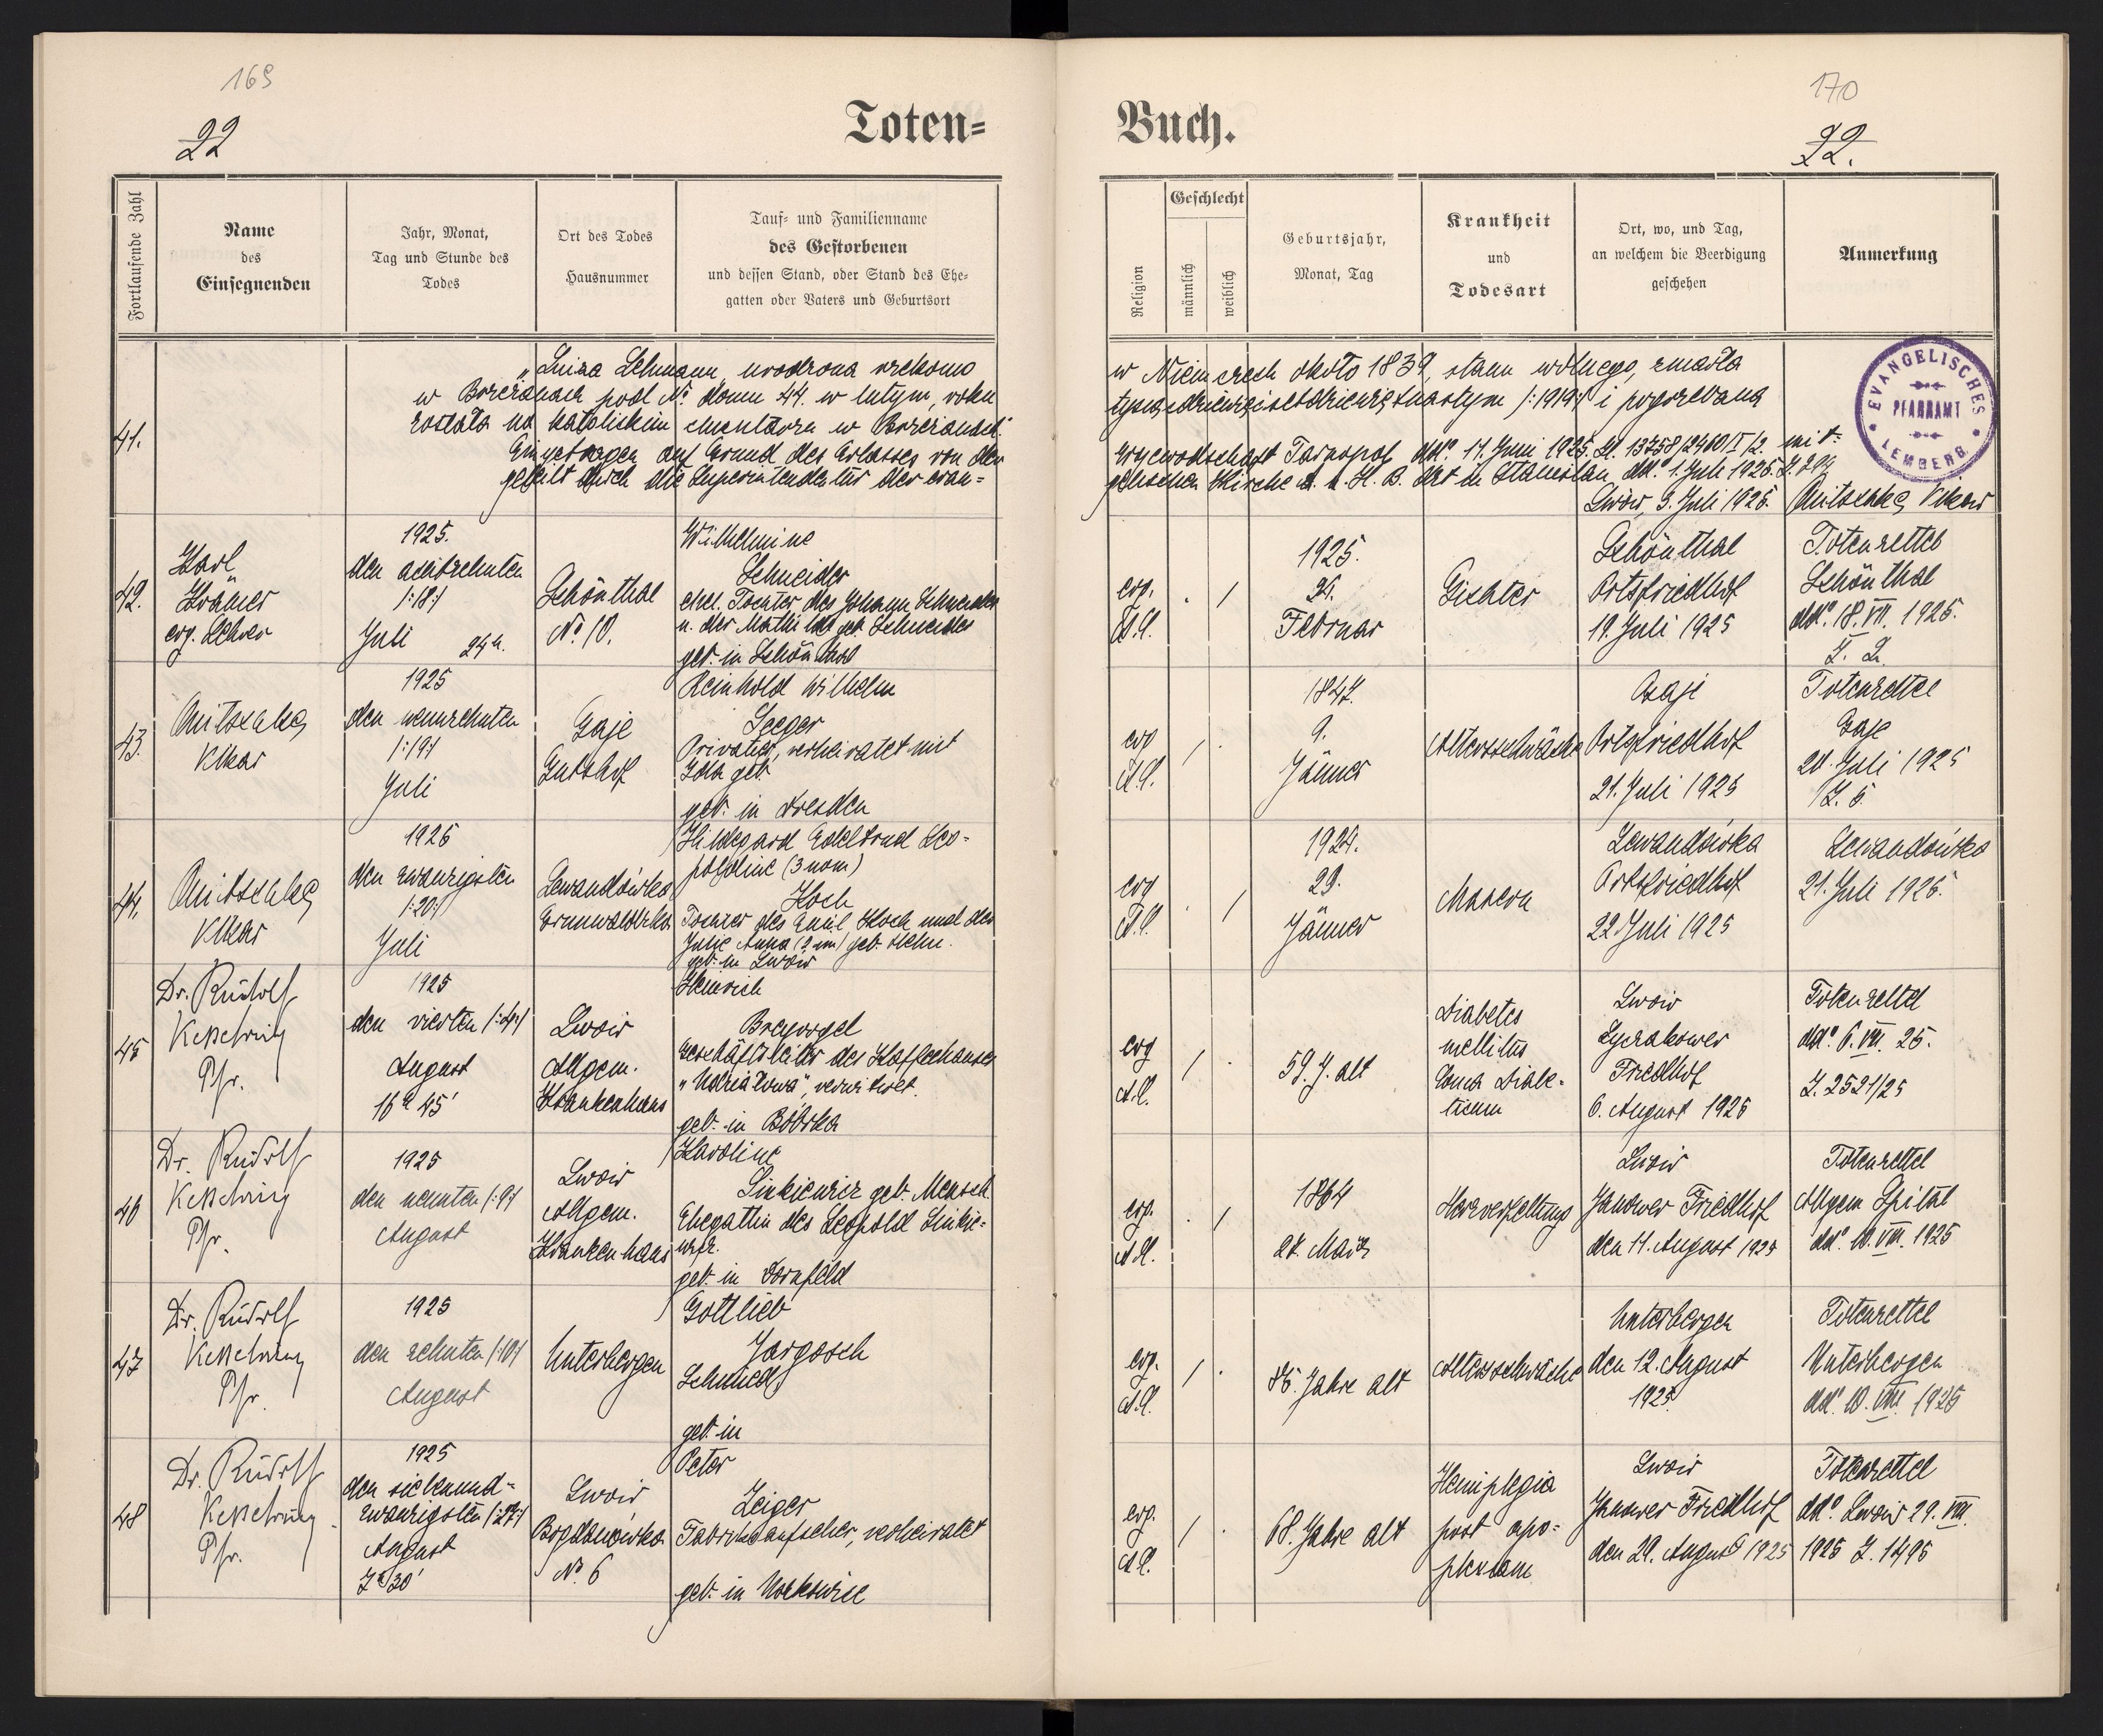 169
22
Toten=
Fortlaufende Zahl
Name
des
Einsegnenden
Jahr, Monat,
Tag und Stunde des
Todes
Ort des Todes
Hausnummer
Tauf= und Familienname
des Gestorbenen
und dessen Stand, oder Stand des Ehe=
gatten oder Vaters und Geburtsort
41.
„Luiza Lehmann, urodzona rzekomo
w pod No domu 44. w lutym, roku
została na katolickim cmentarzu w
Eingetragen auf Grund des Erlasses von der
geteilt durch die Superintendentur der evan=
42.
Karl
Krämer
evg. Lehrer
1925.
den achtzehnten
/:18:/
Juli 24 h.
Schönthal
No 10.
Wilhelmine
Schneider
ehel. Tochter des Johann Schneider
u. der Mathilde geb. Schneider
geb. in Schönthal
43.
Vikar
1925
den neunzehnten
/:19:/
Juli
Gaje
Gutshof
Reinhold Wilhelm
Seeger
Privatier, verheiratet mit
Ida geb.
geb. in Dresden
44.
Vikar
1925
den zwanzigsten
/:20:/
Juli
Lewandówka
Grunwaldzka
Hildegard Edeltrud Leo=
poldine (3 nom.)
Koch
Tochter des Emil Koch und der
Julie Anna (2 nom) geb.
geb. in Lwów
45
Dr. Rudolf
Kesselring
Pfr.
1925
den vierten /:4:/
August
16 h 45'
Lwów
Allgem.
Krankenhaus
Heinrich
Brevogel
Geschäftsleiter des Kaffeehauses
verwitwet.
geb. in Bóbrka
46
Dr. Rudolf
Kesselring
Pfr.
1925
den neunten /:9:/
August
Lwów
Allgem.
Krankenhaus
Karoline
Sinkiewicz geb. Mensch
Ehegattin des Leopold Sinkie=
wicz.
geb. in Dornfeld
47
Dr. Rudolf
Kesselring
Pfr.
1925
den zehnten /:10:/
August
Unterbergen
Gottlieb
Jargosch
Schmied
geb. in
48
Dr. Rudolf
Kesselring
Pfr.
1925
den siebenund=
zwanzigsten /:27:/
August
7 h 30'
Lwów
Bogdanówka
No. 6
Peter
Zeiger
Fabriksaufseher, verheiratet
geb. in
170
Buch.
22.
Religion
Geschlecht
männlich
weiblich
Geburtsjahr,
Monat, Tag
Krankheit
und
Todesart
Ort, wo, und Tag,
an welchem die Beerdigung
geschehen
Anmerkung
EVANGELISCHES
PFARRAMT
LEMBERG
w Niemczech około 1839, stanu wolnego, zmarła
tysiącdziewięćsetdziewiętnastym /:1919:/ i pogrzebana
Woyewodschaft Tarnopol ddo. 17. Juni 1925. mit=
gelischen Kirche A. u. H. B. in Stanislau, ddo. 1. Juli 1925.
Lwów, 3. Juli 1925. Vikar
evg.
A.C.
1925.
Februar
Gichter
Schönthal
Ortsfriedhof
19. Juli 1925
Totenzettel
Schönthal
ddo. 18. VII. 1925.
Z. 2.
evg
A.C.
1847.
9.
Jänner
Altersschwäche
Gaje
Ortsfriedhof
21. Juli 1925
Totenzettel
Gaje
20. Juli 1925
Z. 5.
evg
A.C.
1924.
29.
Jänner
Masern
Lewandówka
Ortsfriedhof
22. Juli 1925
Lewandówka
21. Juli 1925.
evg
A.C.
59 J. alt
Diabetes
mellitus
Coma Diabe=
ticum
Lwów
Lyczakower
Friedhof
6. August 1925
Totenzettel
ddo. 6. VIII. 25.
Z. 2521/25
evg.
A.C.
1864
27. März
Herzverfettung
Lwów
Janower Friedhof
den 11. August 1925
Totenzettel
Allgem Spital
ddo. 10. VIII. 1925
evg.
A.C.
86. Jahre alt
Altersschwäche
Unterbergen
den 12. August
1925.
Totenzettel
Unterbergen
ddo. 10. VIII. 1925
evg.
A.C.
68. Jahre alt
Hemiplegia
post apo=
plexiam
Lwów
Janower Friedhof
den 29. August 1925
Totenzettel
ddo. Lwów 29. VIII.
1925 Z. 1495